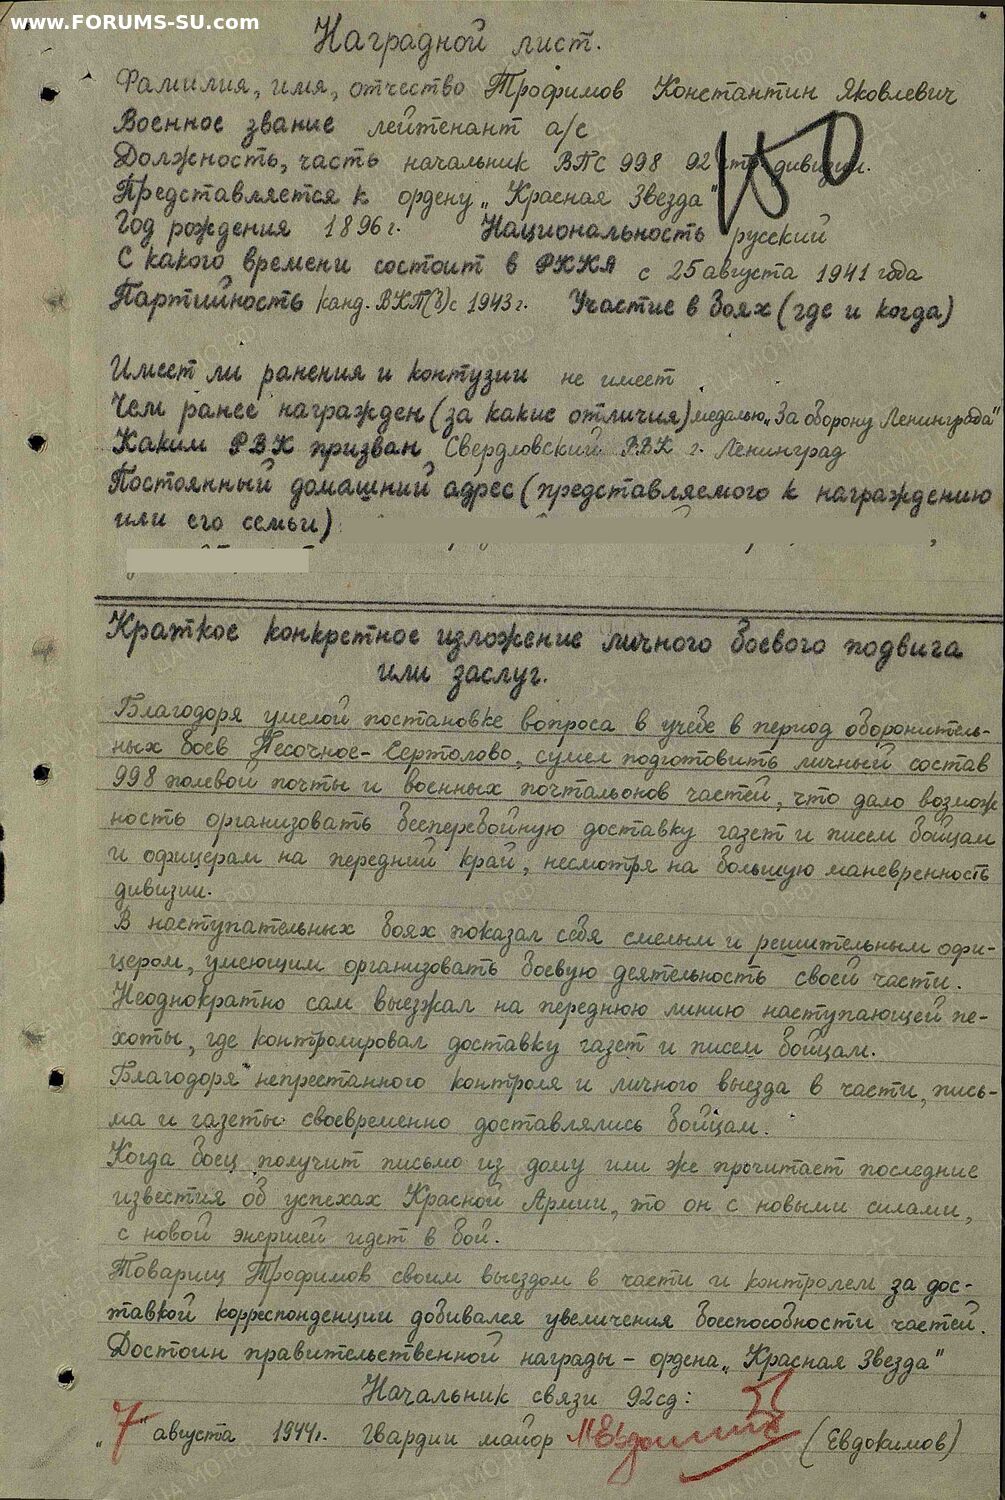 www.FORUMS-SU.com
Наградной лист.
Фамилия, имя, отчество Трофимов Константин Яковлевич
Военное звание лейтенант а/с
Должность, часть начальник ВПС 998 92 стр. дивизии.
150
Представляется к ордену „Красная Звезда"
Год рождения 1896 г. Национальность русский
С какого времени состоит в РККА с 25 августа 1941 года
Партийность канд. ВКП(б) с 1943 г. Участие в боях (где и когда)
Имеет ли ранения и контузии не имеет
Чем ранее награжден (за какие отличия) медалью „За оборону Ленинграда"
Каким РВК призван Свердловский РВК г. Ленинград
Постоянный домашний адрес (представляемого к награждению
или его семьи)
Краткое конкретное изложение личного боевого подвига
или заслуг.
Благодоря умелой постановке вопроса в учебе в период оборонитель-
ных боев Песочное-Сертолово, сумел подготовить личный состав
998 полевой почты и военных почтальонов частей, что дало возмож
ность организовать бесперебойную доставку газет и писем бойцам
и офицерам на передний край, несмотря на большую маневренность
дивизии.
В наступательных боях показал себя смелым и решительным офи-
цером, умеющим организовать боевую деятельность своей части.
Неоднократно сам выезжал на переднюю линию наступающей пе-
хоты, где контролировал доставку газет и писем бойцам.
Благодоря непрестанного контроля и личного выезда в части, пись-
ма и газеты своевременно доставлялись бойцам.
Когда боец получит письмо из дому или же прочитает последние
известия об успехах Красной Армии, то он с новыми силами,
с новой энергией идет в бой.
Товарищ Трофимов своим выездом в части и контролем за дос-
тавкой корреспонденции добивался увеличения боеспособности частей.
Достоин правительственной награды – ордена „Красная Звезда"
Начальник связи 92сд:
„7" августа 1944г. гвардии майор (Евдокимов)